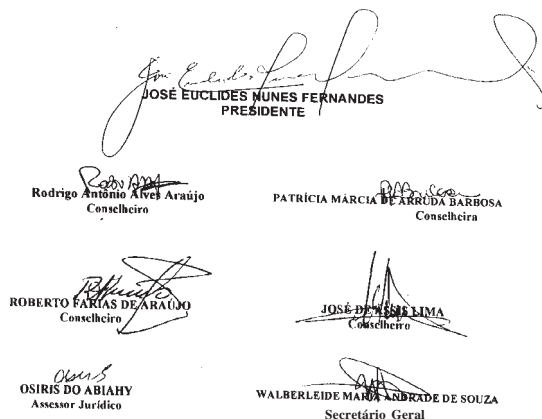 José Euclides
JOSÉ EUCLIDES NUNES FERNANDES
PRESIDENTE
Rodrigo Antônio Alves Araújo
Conselheiro
PATRÍCIA MÁRCIA DE ARRUDA BARBOSA
Conselheira
ROBERTO FARIAS DE ARAÚJO
Conselheiro
JOSÉ DE ASSIS LIMA
Conselheiro
Osiris
OSIRIS DO ABIAHY
Assessor Jurídico
WALBERLEIDE MARIA ANDRADE DE SOUZA
Secretário Geral